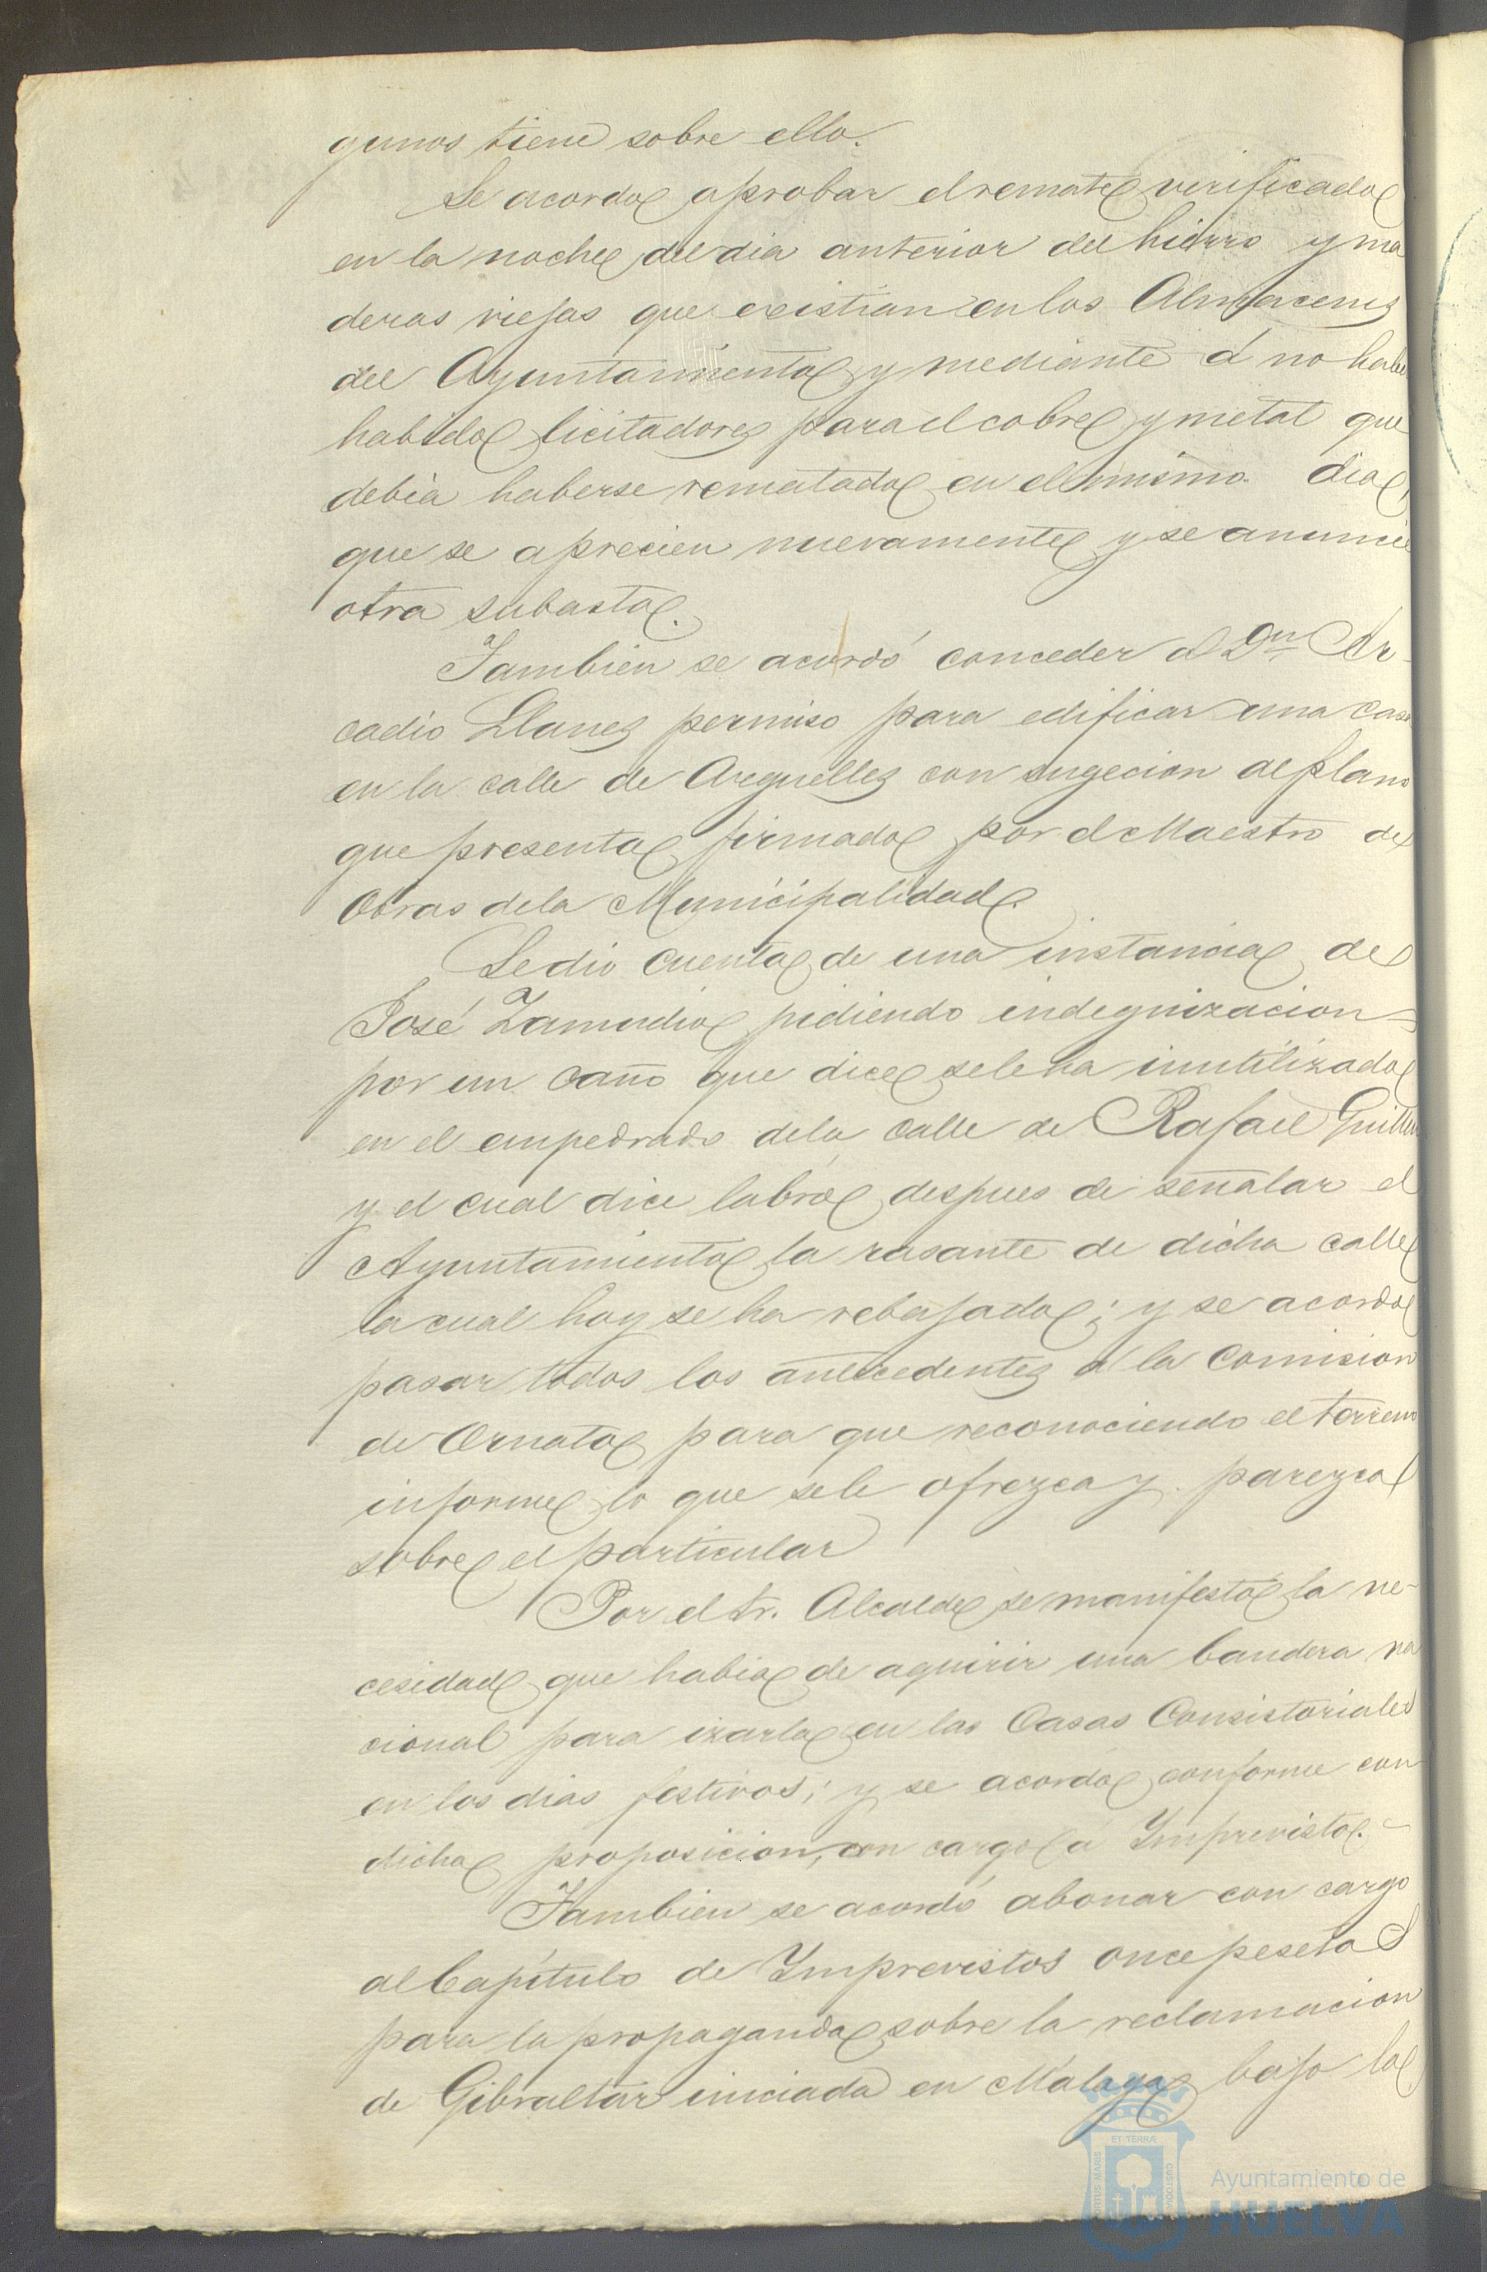 gunos tiene sobre ello.
Se acordó aprobar el remate verificado
en la noche del dia anterior del hierro y ma
deras viejas que existian en los Almacenes
del Ayuntamiento y mediante á no haber
habido licitadores para el cobre y metal que
debia haberse rematado en el mismo dia,
que se aprecien nuevamente y se anuncie
otra subasta.
Tambien se acordó conceder á Dn Ar-
cadio Llanes permiso para edificar una casa
en la calle de Arguelles con sugecion al plano
que presenta firmado por el Maestro de
Obras dela Municipalidad.
Se dió cuenta de una instancia de
José Zamudio pidiendo indegnizacion
por un caño que dice sele ha inutilizado
en el empedrado dela calle de Rafael Guillen
y el cual dice labró despues de señalar el
Ayuntamiento la rasante de dicha calle
la cual hoy se ha rebajado; y se acordó
pasar todos los antecedentes á la Comision
de Ornato para que reconociendo el terreno
informe lo que sele ofrezca y parezca
sobre el particular
Por el Sr. Alcalde se manifestó la ne-
cesidad que habia de aquirir una bandera na
cional para izarla en las Casas Consistoriales
en los dias festivos; y se acordó conforme con
dicha proposicion, con cargo á Imprevisto.
Tambien se acordó abonar con cargo
al Capítulo de Imprevistos once pesetas
para la propaganda sobre la reclamacion
de Gibraltar iniciada en Málaga bajo la
ET TERRÆ
PORTUS MARIS
CUSTODIA
Ayuntamiento de
HUELVA